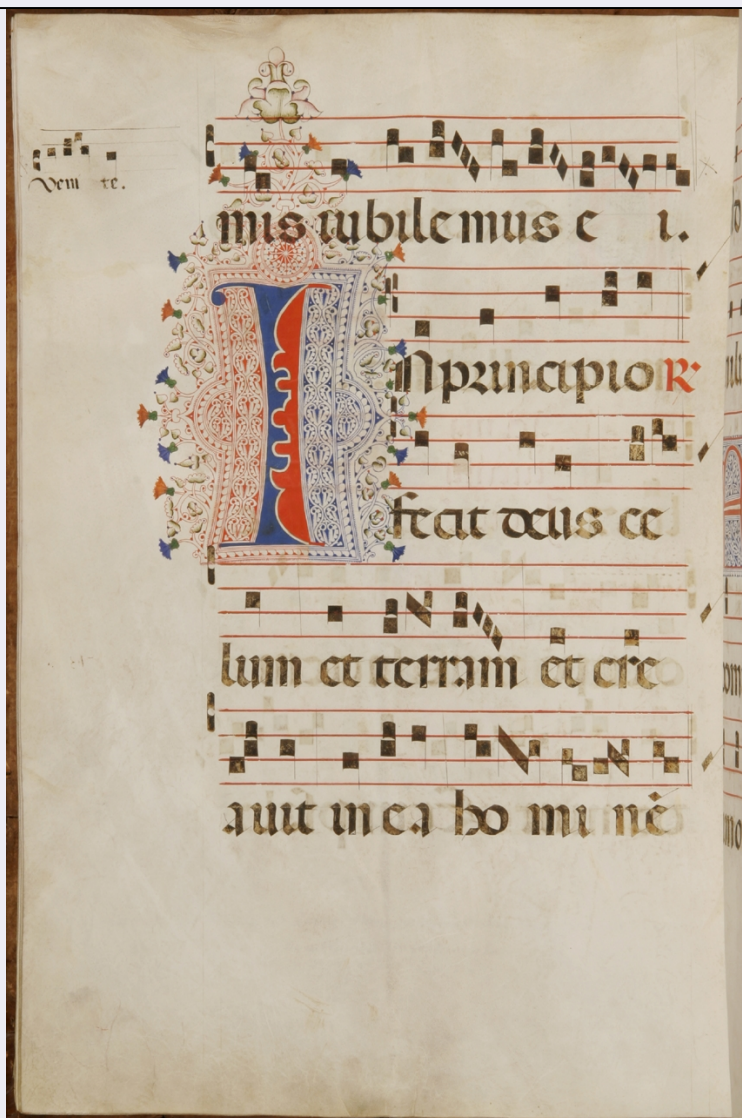 Veni te.
mis iubilemus e i.
IN principio R
fecit deus ce
lum et terram et cre
avit in ea ho mi nē